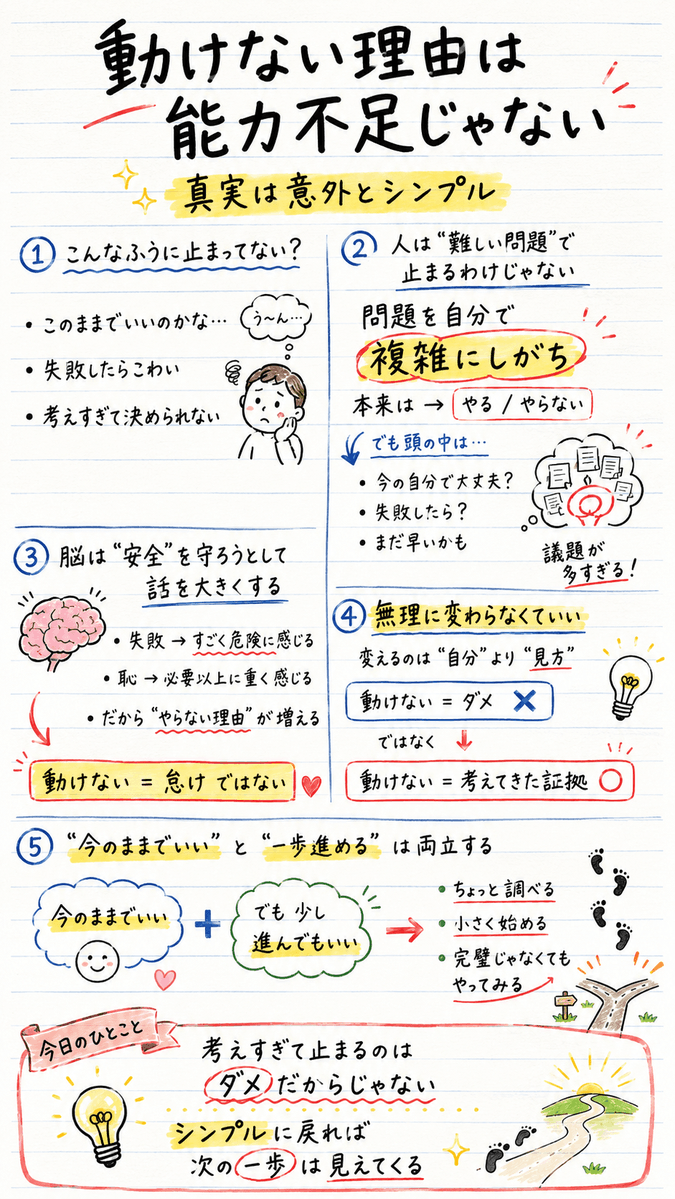 動けない理由は
能力不足じゃない
真実は意外とシンプル
① こんなふうに止まってない?
• このままでいいのかな…
う〜ん…
• 失敗したらこわい
• 考えすぎて決められない
② 人は“難しい問題”で
止まるわけじゃない
問題を自分で
複雑にしがち
本来は → やる / やらない
でも頭の中は…
• 今の自分で大丈夫?
• 失敗したら?
• まだ早いかも
議題が
多すぎる!
③ 脳は“安全”を守ろうとして
話を大きくする
• 失敗 → すごく危険に感じる
• 恥 → 必要以上に重く感じる
• だから“やらない理由”が増える
動けない = 怠け ではない
④ 無理に変わらなくていい
変えるのは“自分”より“見方”
動けない = ダメ ✕
ではなく ↓
動けない = 考えてきた証拠 ○
⑤ “今のままでいい” と “一歩進める” は両立する
今のままでいい
+
でも 少し
進んでもいい
→
• ちょっと調べる
• 小さく始める
• 完璧じゃなくても
やってみる
今日のひとこと
考えすぎて止まるのは
ダメだからじゃない
シンプルに戻れば
次の一歩は見えてくる